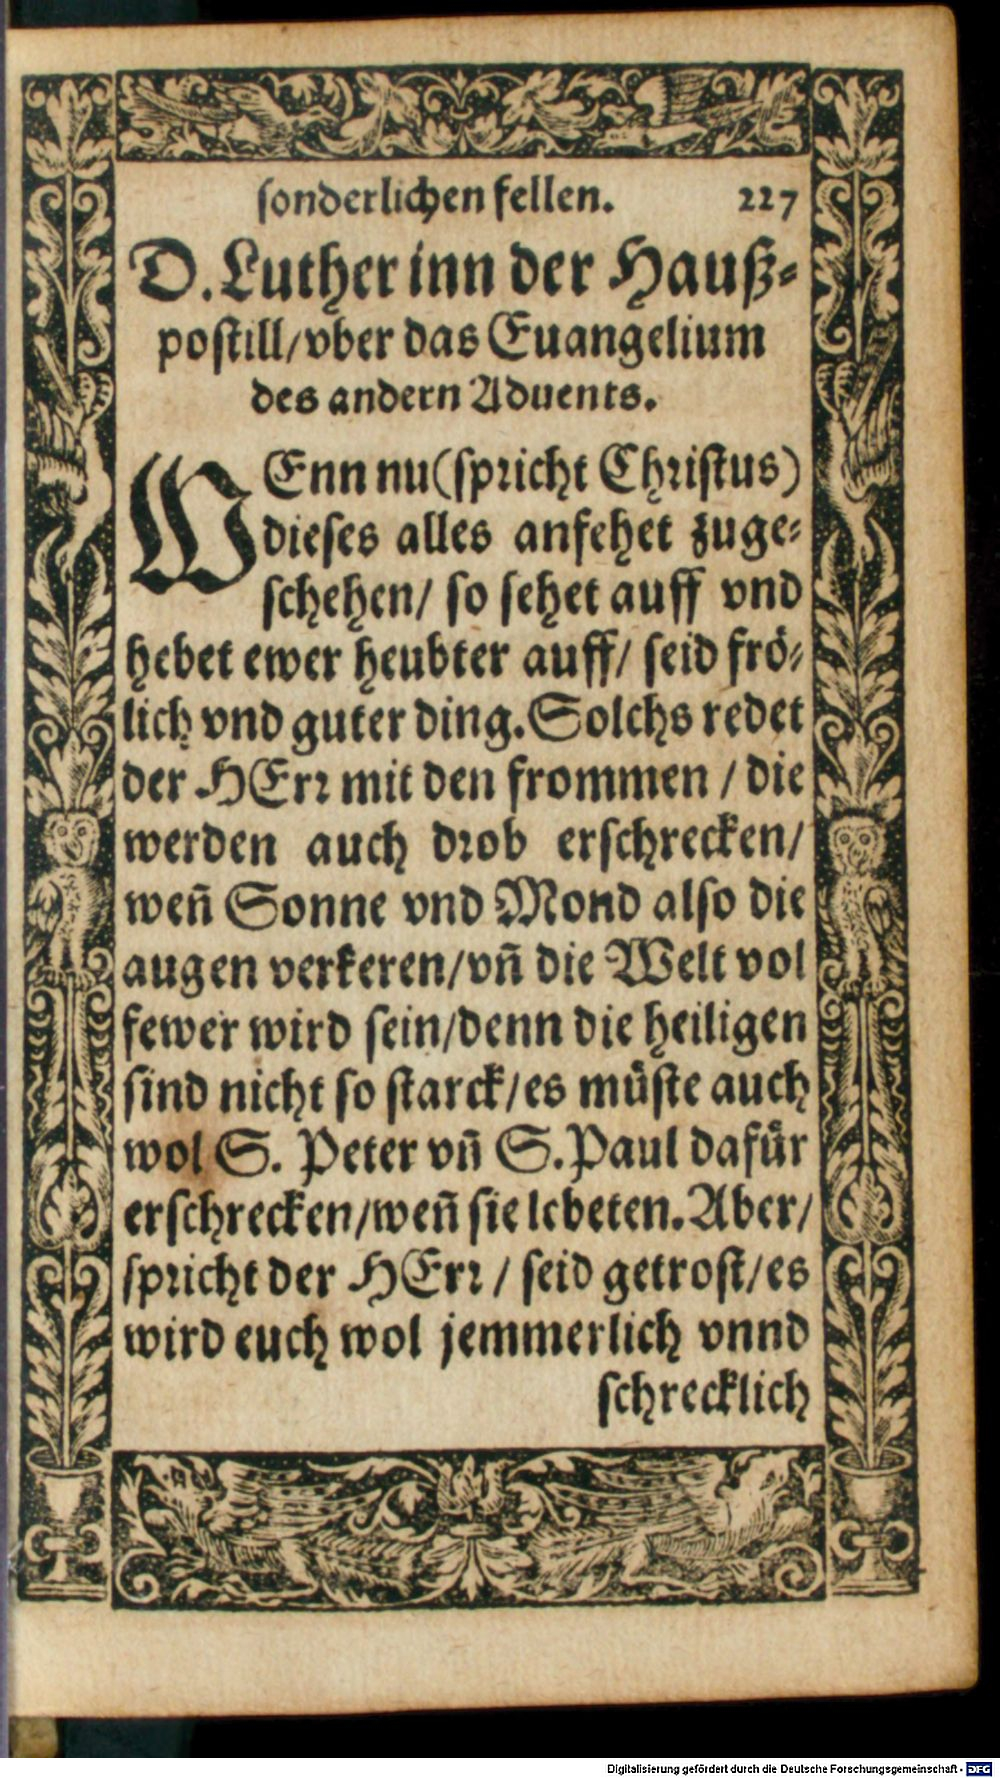 sonderlichen fellen. 227
D. Luther inn der Hauß-
postill/vber das Euangelium
des andern Aduents.
WEnn nu (spricht Christus)
dieses alles anfehet zuge-
schehen/ so sehet auff vnd
hebet ewer heubter auff/ seid frö-
lich vnd guter ding. Solchs redet
der HErr mit den frommen / die
werden auch drob erschrecken/
weñ Sonne vnd Mond also die
augen verkeren/vñ die Welt vol
fewer wird sein/denn die heiligen
sind nicht so starck/es müste auch
wol S. Peter vñ S. Paul dafür
erschrecken/weñ sie lebeten. Aber/
spricht der HErr / seid getrost/es
wird euch wol jemmerlich vnnd
schrecklich
Digitalisierung gefördert durch die Deutsche Forschungsgemeinschaft - DFG